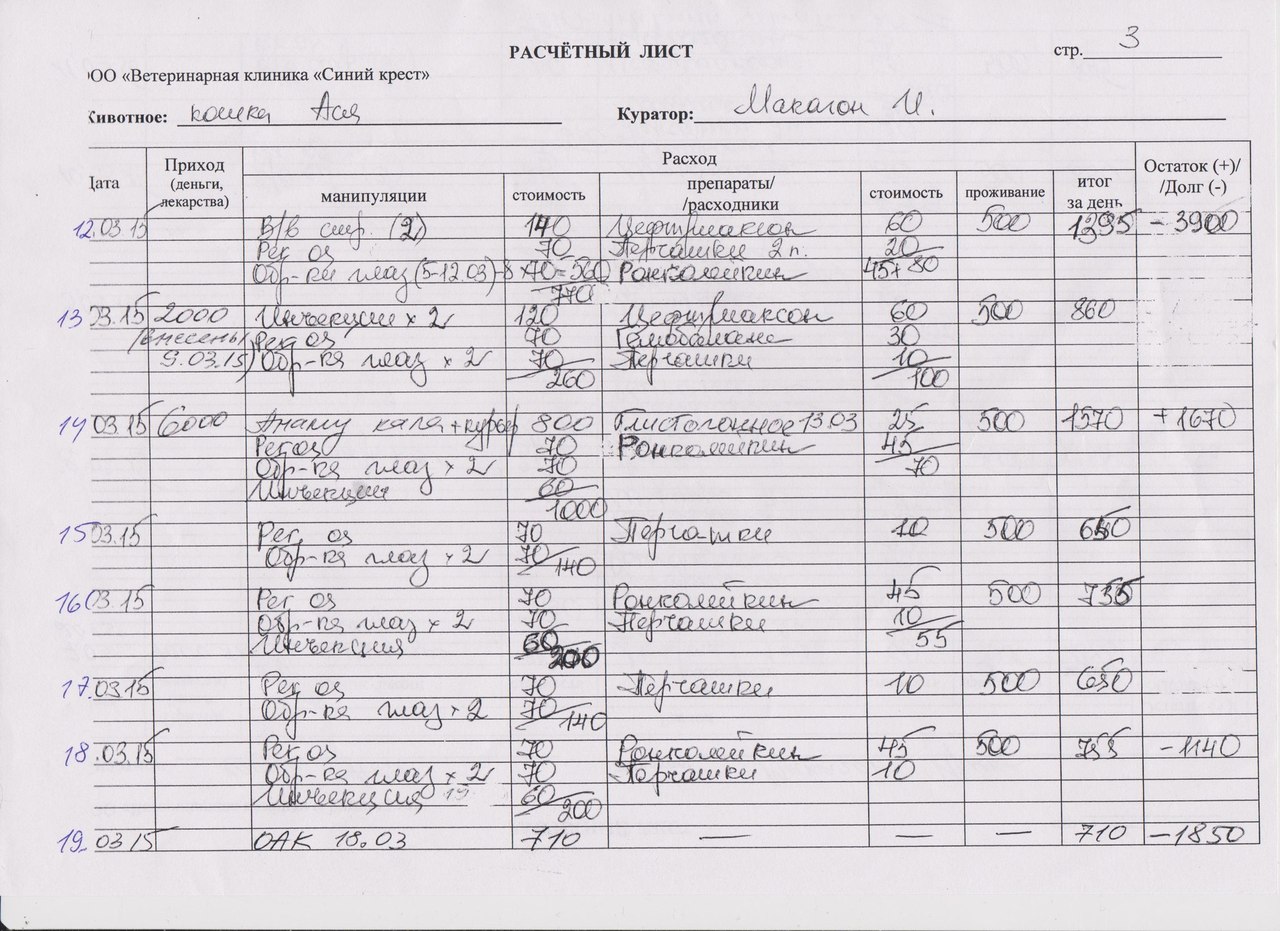 РАСЧЁТНЫЙ ЛИСТ
стр. 3
ОО «Ветеринарная клиника «Синий крест»
Животное: кошка Ася
Куратор: Макагон И.
Дата
Приход (деньги, лекарства)
Расход
Остаток (+)/ /Долг (-)
манипуляции
стоимость
препараты/ /расходники
стоимость
проживание
итог за день
12.03.15 В/в стр. (2) 140 Цефтриаксон 60 500 1395 - 3900
Рег. оз 70 Перчатки 2 п. 20
Обр-ки глаз (5-12.03)-8×70=560 Ронколейкин 45+80
770
13 03.15 2000 Инъекции × 2 120 Цефтриаксон 60 500 860
(внесены Рег оз 70 Гемобаланс 30
9.03.15) Обр-ка глаз × 2 70 Перчатки 10
260 100
14 03.15 6000 Анализ кала+курьер 800 Глистогонное 13.03 25 500 1570 + 1670
Рег оз 70 Ронколейкин 45
Обр-ка глаз × 2 70 70
Инъекции 60
1000
15 03.15 Рег. оз 70 Перчатки 10 500 650
Обр-ка глаз × 2 70
140
16 03.15 Рег оз 70 Ронколейкин 45 500 755
Обр-ка глаз × 2 70 Перчатки 10
Инъекция 60 55
200
17.03.15 Рег оз 70 Перчатки 10 500 650
Обр-ка глаз × 2 70
140
18.03.15 Рег. оз 70 Ронколейкин 45 500 755 -1140
Обр-ка глаз × 2 70 Перчатки 10
Инъекция 60
200
19 03 15 ОАК 18.03 710 — — — 710 -1850